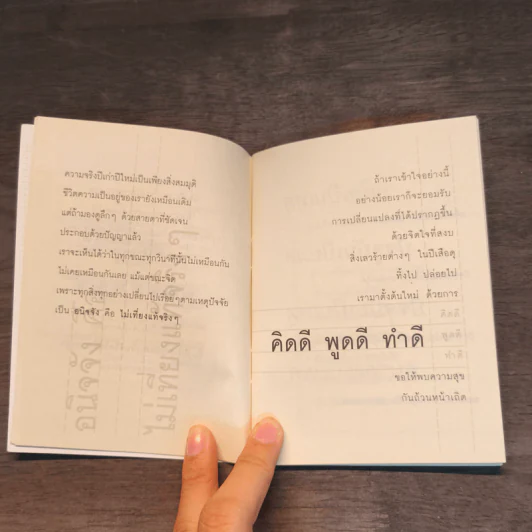 ความจริงปีเก่าปีใหม่เป็นเพียงสิ่งสมมุติ
ชีวิตความเป็นอยู่ของเรายังเหมือนเดิม
แต่ถ้ามองดูลึกๆ ด้วยสายตาที่ชัดเจน
ประกอบด้วยปัญญาแล้ว
เราจะเห็นได้ว่าในทุกขณะทุกวินาทีนั้นไม่เหมือนกัน
ไม่เคยเหมือนกันเลย แม้แต่ขณะจิต
เพราะทุกสิ่งทุกอย่างเปลี่ยนไปเรื่อยๆตามเหตุปัจจัย
เป็น อนิจจัง คือ ไม่เที่ยงแท้จริงๆ
อนิจจัง
ไม่เที่ยงแท้จริงๆ
ถ้าเราเข้าใจอย่างนี้
อย่างน้อยเราก็จะยอมรับ
การเปลี่ยนแปลงที่ได้ปรากฏขึ้น
ด้วยจิตใจที่สงบ
สิ่งเลวร้ายต่างๆ ในปีเสือดุ
ทิ้งไป ปล่อยไป
เรามาตั้งต้นใหม่ ด้วยการ
คิดดี
พูดดี
ทำดี
คิดดี พูดดี ทำดี
ขอให้พบความสุข
กันถ้วนหน้าเถิด